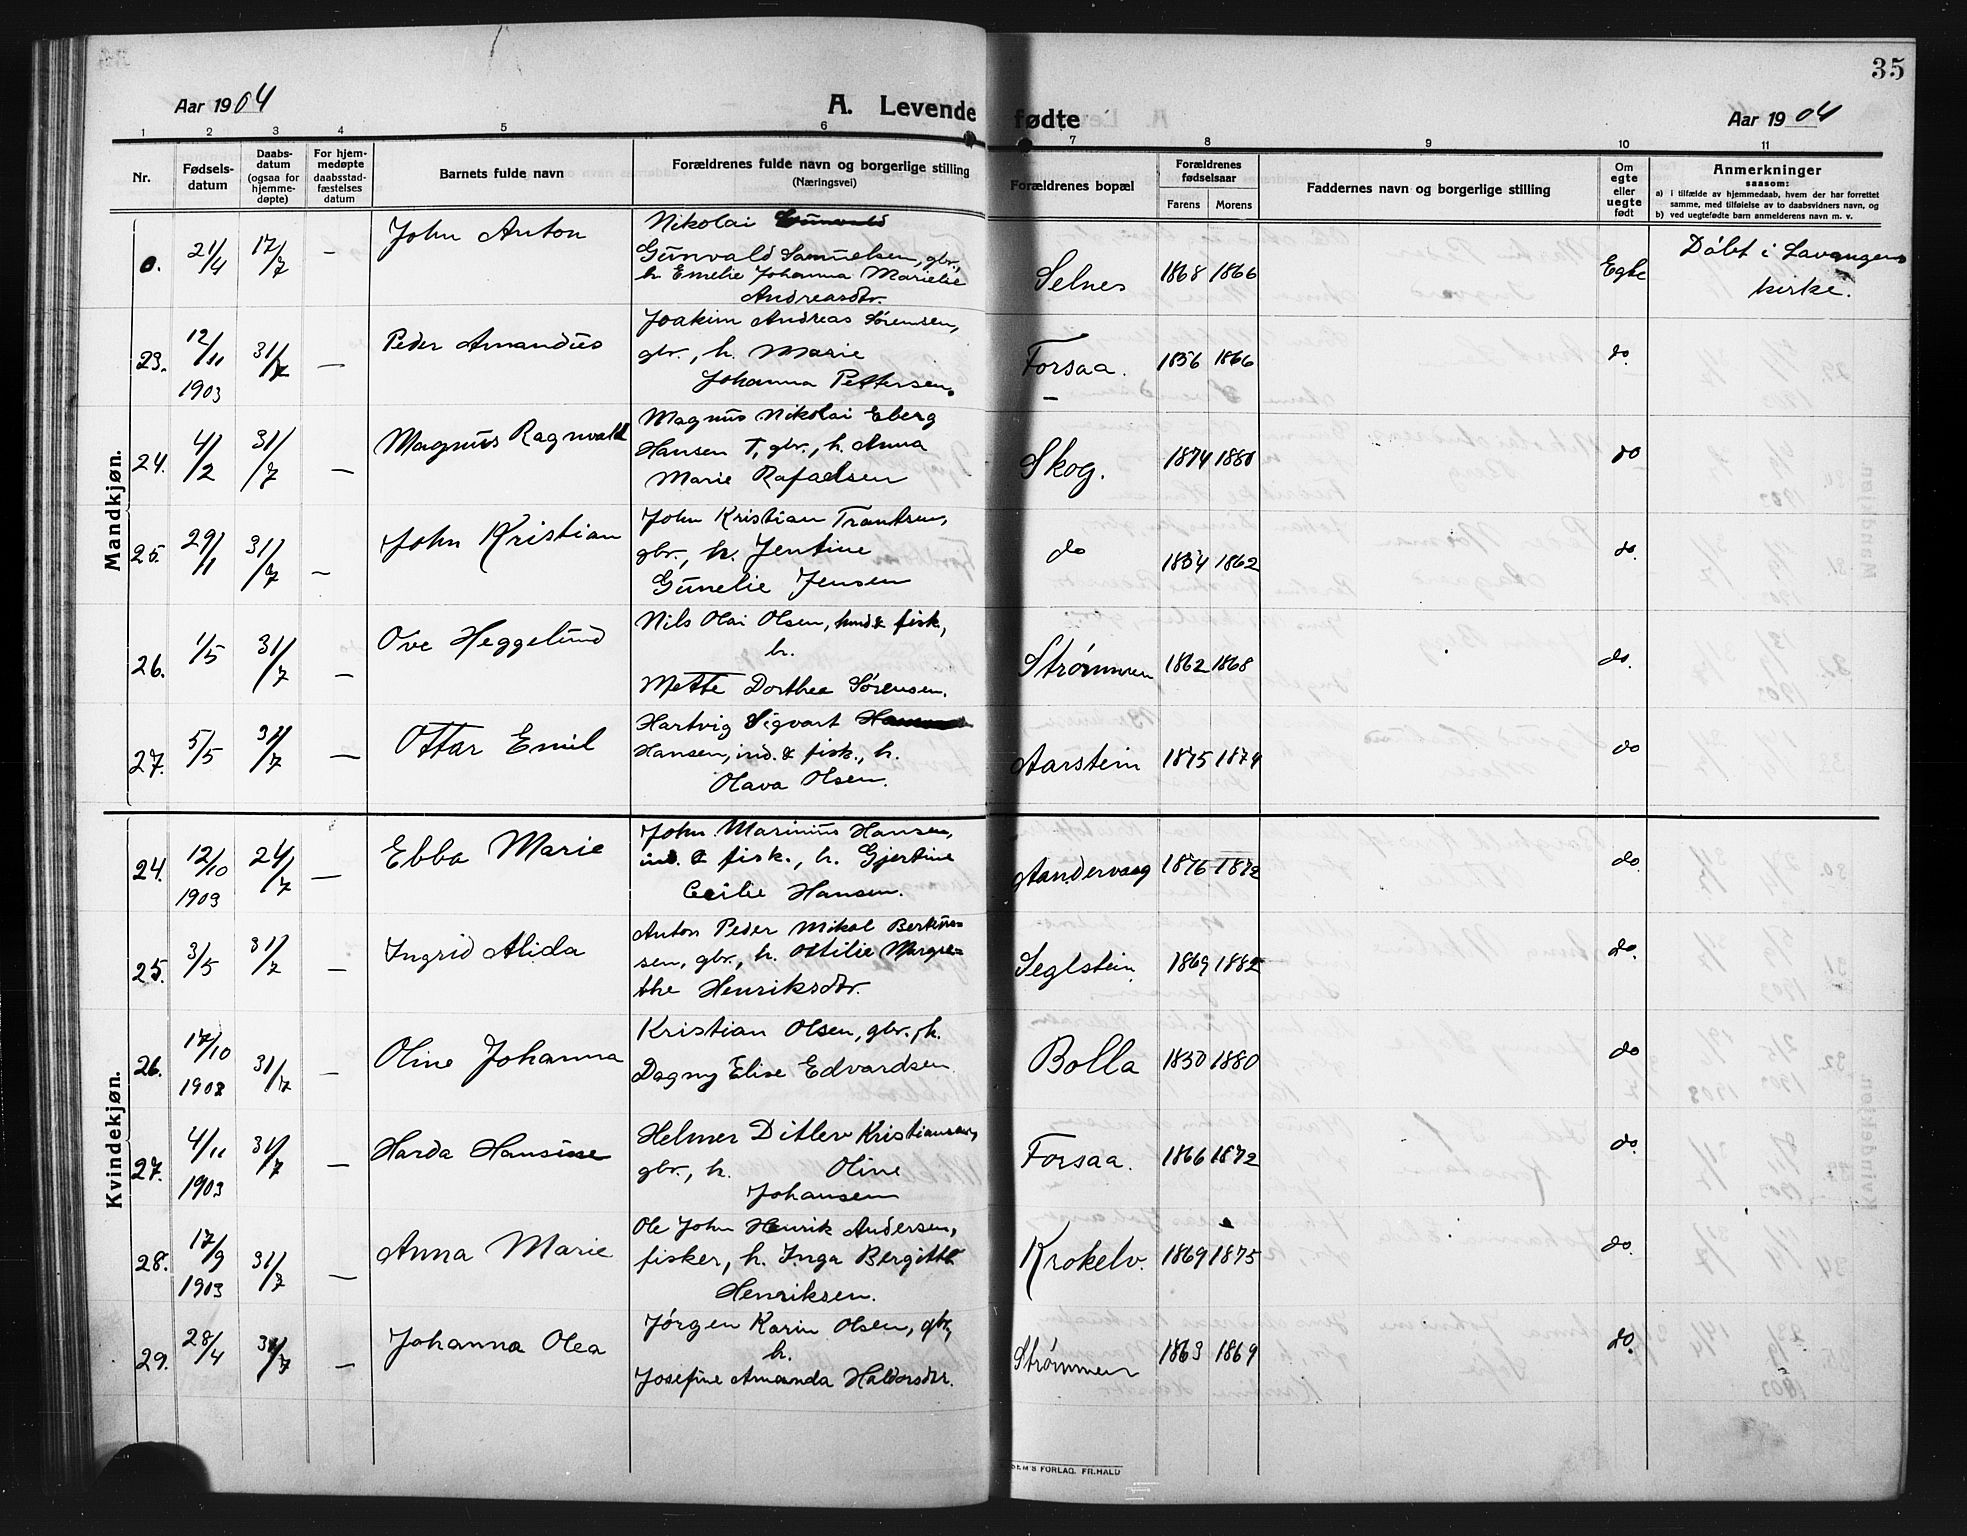 35
Aar 1904 A. Levende fødte Aar 1904
1 2 3 4 5 6 7 8 9 10 11
Nr. Fødsels-datum Daabs-datum (ogsaa for hjemme-døpte) For hjem-medøpte daabsstad-fæstelses datum Barnets fulde navn Forældrenes fulde navn og borgerlige stilling (Næringsvei) Forældrenes bopæl Forældrenes fødselsaar Farens Morens Faddernes navn og borgerlige stilling Om egte eller uegte født Anmerkninger saasom: a) i tilfælde av hjemmedaab, hvem der har forrettet samme, med tilføielse av to daabsvidners navn, og b) ved uegtefødte barn anmelderens navn m. v.
Mandkjøn.
0. 21/4 17/7 — John Anton Nikolai Gunvald
Gunvald Samuelsen, gbr.,
h. Emelie Johanna Marielie
Andreasdtr. Selnes 1868 1866 Egte Døbt i Lavangens
kirke.
23. 12/11 1903 31/7 — Peder Amandus Joakim Andreas Sørensen,
gbr., h. Marie
Johanna Pettersen. Forsaa. 1856 1866 do.
24. 4/2 31/7 — Magnus Ragnvald Magnus Nikolai Eberg
Hansen T, gbr., h. Anna
Marie Rafaelsen Skog. 1874 1880 do
25. 29/1 31/7 — John Kristian John Kristian Trantsen,
gbr., h. Jentine
Gunelie Jensen do 1854 1862 do.
26. 1/5 31/7 — Ove Heggelund Nils Olai Olsen, hmd & fisk.,
h.
Mette Dorthea Sørensen. Strømmen 1862 1868 do.
27. 5/5 31/7 — Ottar Emil Hartvig Sigvart
Hansen, ind. & fisk., h.
Olava Olsen. Aarstein 1875 1879 do
Kvindekjøn.
24. 12/10 1903 24/7 — Ebba Marie John Marinius Hansen,
ind. & fisk., h. Gjertine
Cecilie Hansen. Aandervaag 1876 1872 do.
25. 3/5 31/7 — Ingrid Alida Anton Peder Mikal Berteus-
sen, gbr., h. Ottilie Margre-
the Henriksdtr. Seglstein 1869 1882 do.
26. 17/10 1903 31/7 — Oline Johanna Kristian Olsen, gbr., h.
Dagny Elise Edvardsen. Bolla 1850 1880 do
27. 4/11 1903 31/7 — Harda Hansine Helmer Ditlev Kristiansen,
gbr., h. Oline
Johansen Forsaa. 1866 1872 do.
28. 17/9 1903 31/7 — Anna Marie Ole John Henrik Andersen,
fisker, h. Inga Bergitte
Henriksen. Krokelv. 1869 1875 do.
29. 28/4 31/7 — Johanna Olea Jørgen Karin Olsen, gbr,
h.
Josefine Amanda Haldorsdtr. Strømmen 1863 1869 do.
SEM'S FORLAG. FR.HALD